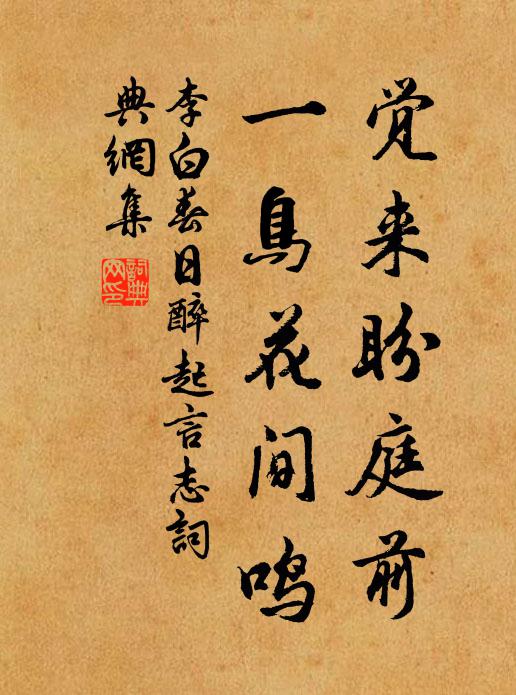 觉来盼庭前
一鳥花间鸣
李白春日醉起言志詞
典網集
詞典
网印